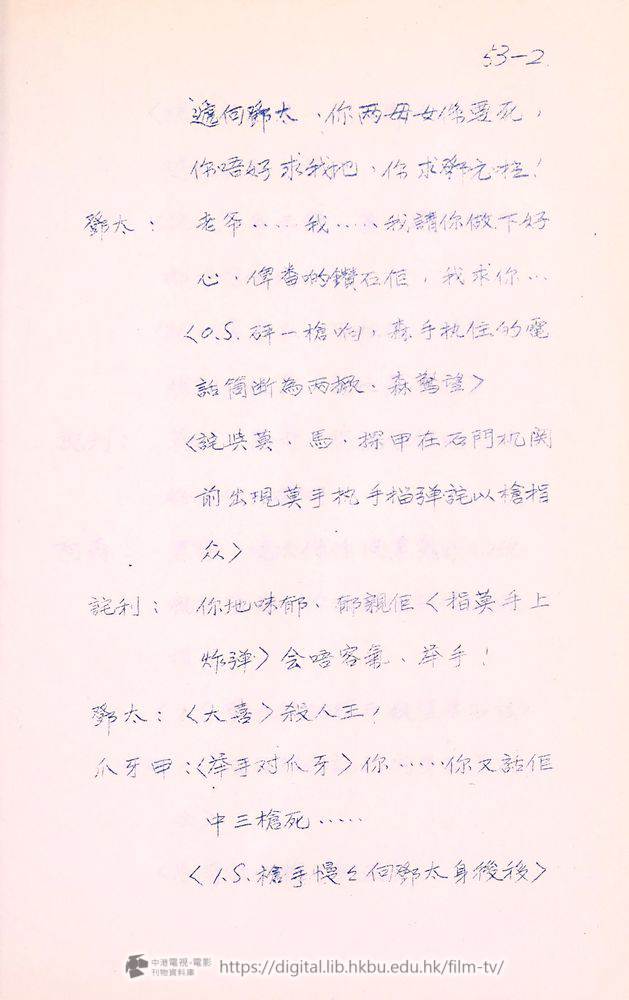 53-2
遞向鄧太、你两母女係要死,
你唔好求我地、你求鄧元啦!
鄧太: 老爷....我.....我請你做下好
心、俾番啲鑽石佢,我求你...
<O.S.砰一槍响,森手执住的電
話筒断為两撅、森驚望>
<詫與莫、馬、探甲在石門机関
前出現莫手执手榴弹詫以槍指
众>
詫利: 你地咪郁、郁親佢<指莫手上
炸弹>会唔客氣、举手!
鄧太:<大喜>殺人王,
爪牙甲:<举手对爪牙>你......你又話佢
中三槍死......
<I.S.槍手慢々向鄧太身後移>
中港電視·電影
刊物資料庫
https://digital.lib.hkbu.edu.hk/film-tv/